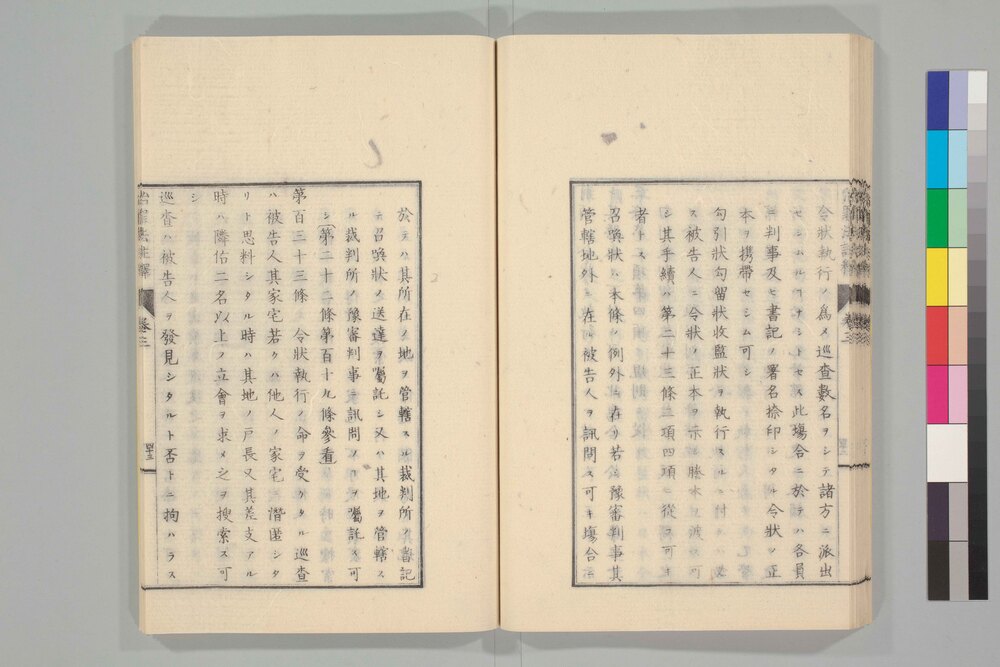 令状執行ノ爲メ巡査數名ヲシテ諸方ニ派出
セシムルコナシトセス此塲合ニ於テハ各員
ニ判事及ヒ書記ノ署名捺印シタル令状ノ正
本ヲ携帶セシム可シ
勾引状勾留状收監状ヲ執行スルニ付テハ必
ス被告人ニ令状ノ正本ヲ示シ謄本ヲ下渡ス可
シ其手續ハ第二十三條二項四項ニ從フ可キ
者トス
召喚状ハ本條ノ例外ニ在リ若シ豫審判事其
管轄地外ニ在ル被告人ヲ訊問ス可キ塲合ニ
於テハ其所在ノ地ヲ管轄スル裁判所ノ書記
ニ召喚状ノ送達ヲ囑託シ又ハ其地ヲ管轄ス
ル裁判所ノ豫審判事ニ訊問ノコヲ囑託ス可
シ(第二十二條第百十九條參看)
第百三十三條 令状執行ノ命ヲ受ケタル巡査
ハ被告人其家宅若クハ他人ノ家宅ニ潜匿シタ
リト思料シタル時ハ其地ノ戸長又其差支アル
時ハ隣佑二名以上ノ立會ヲ求メ之ヲ搜索ス可
シ
巡査ハ被告人ヲ發見シタルト否トニ拘ハラス
治罪法註釋 卷三